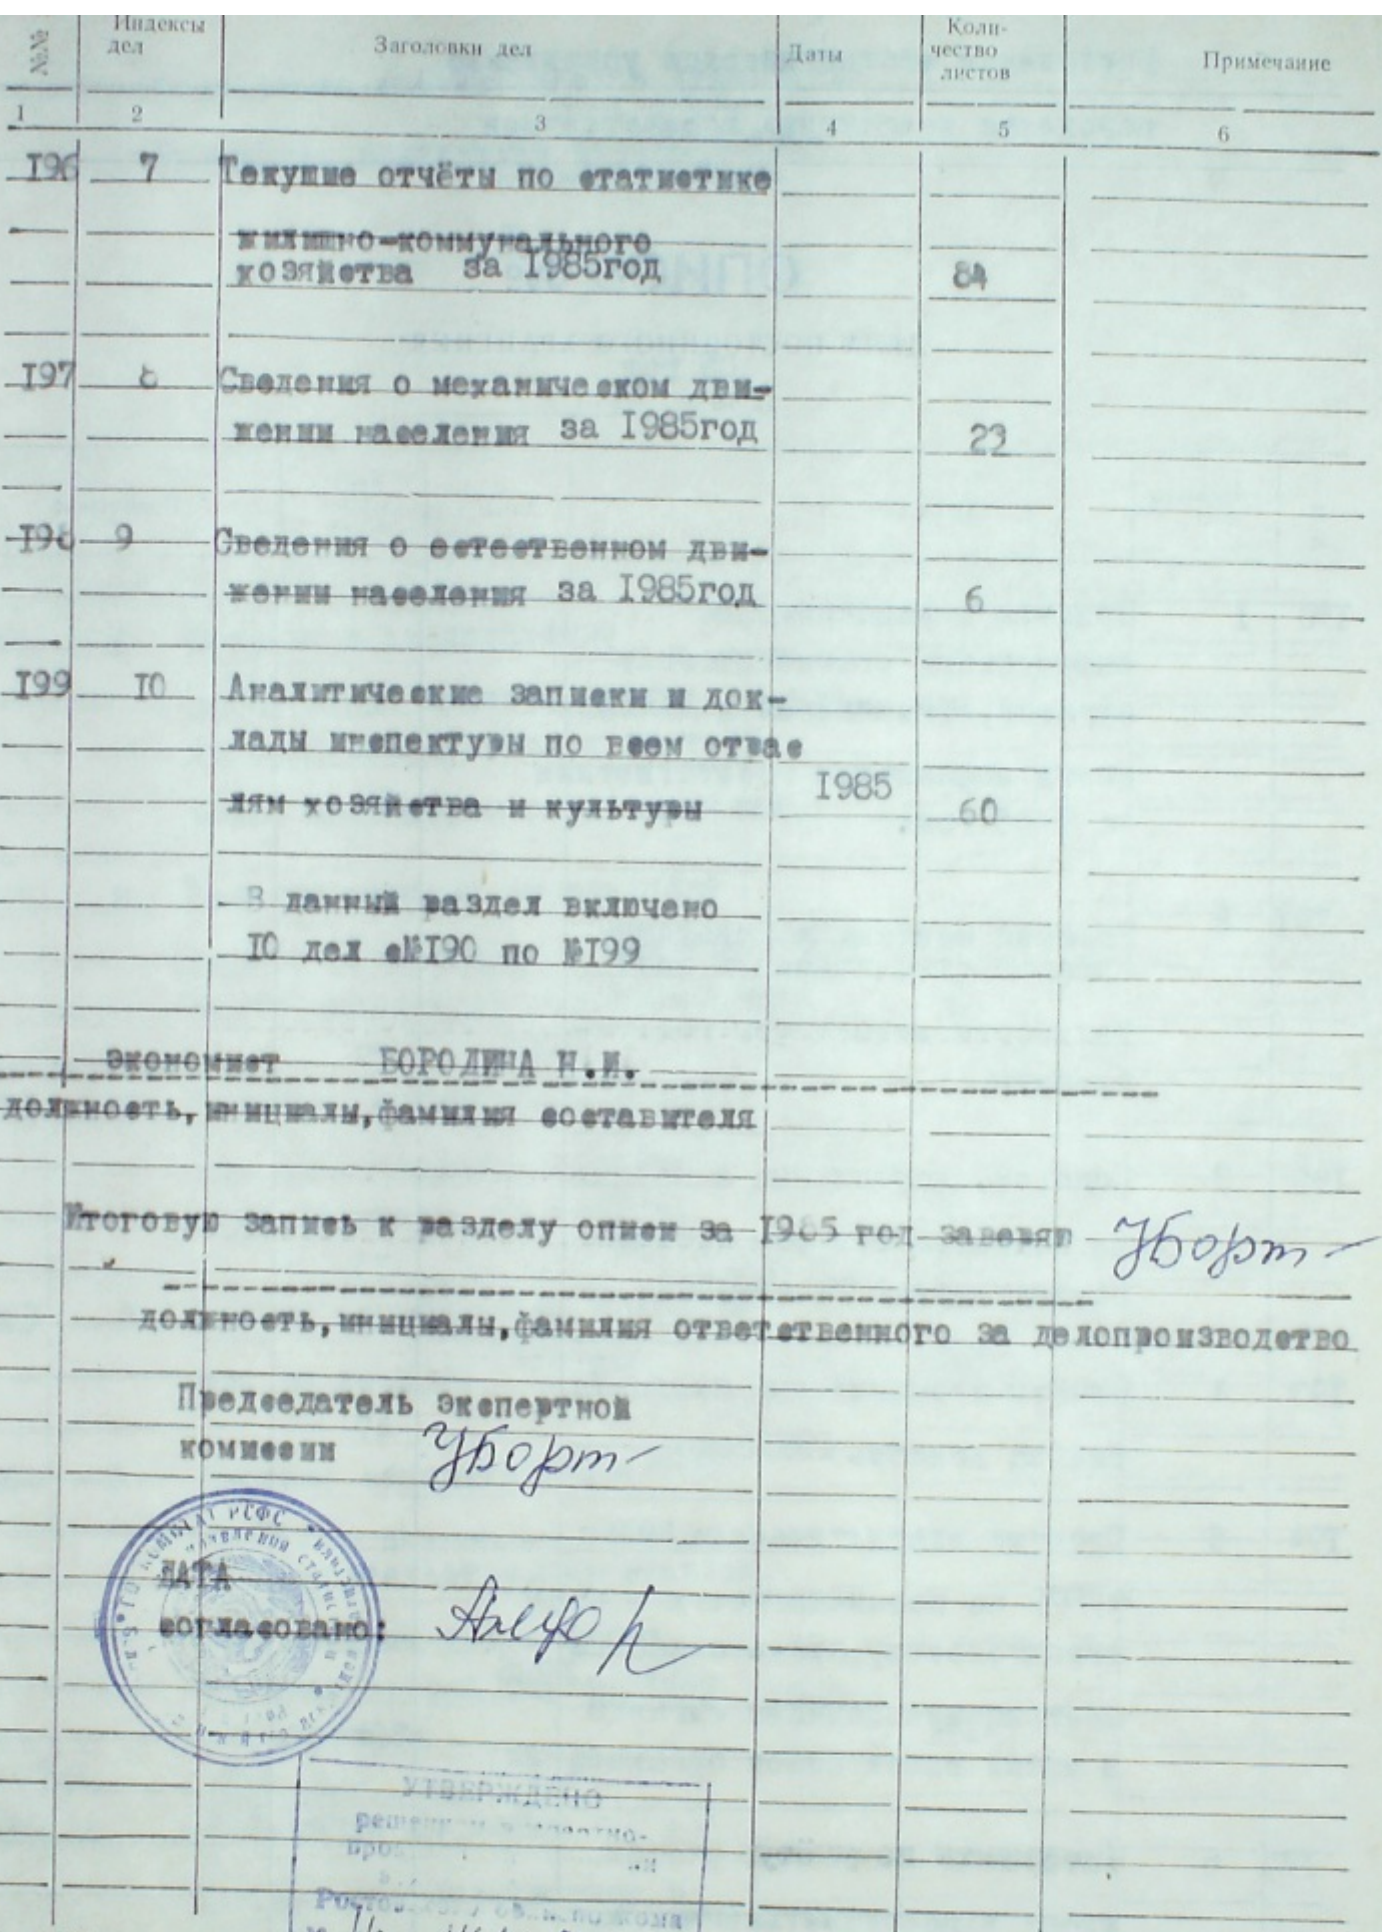 №№ Индексы дел Заголовки дел Даты Коли-чество листов Примечание
1 2 3 4 5 6
I96 7 Текущие отчёты по статистике
жилищно-коммунального
хозяйства за I985год 84
I97 8 Сведения о механическом дви-
жении населения за I985год 23
I98 9 Сведения о естественном дви-
жении населения за I985год 6
I99 I0 Аналитические записки и док-
лады инспектуры по всем отрас
лям хозяйства и культуры I985 60
В данный раздел включено
I0 дел с№I90 по №I99
Экономист БОРОДИНА Н.И.
должность,инициалы,фамилия составителя
Итоговую запись к разделу описи за I985 год заверяю
должность,инициалы,фамилия ответственного за делопроизводство
Председатель Экспертной
комиссии
ДАТА
согласовано:
УТВЕРЖДЕНО